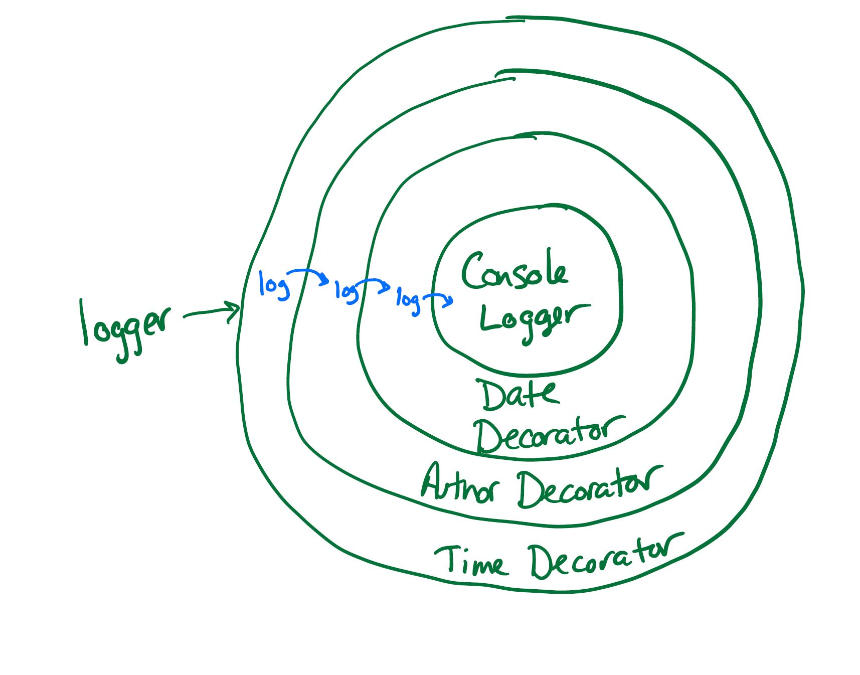 logger
log
log
log
Console
Logger
Date
Decorator
Author Decorator
Time Decorator